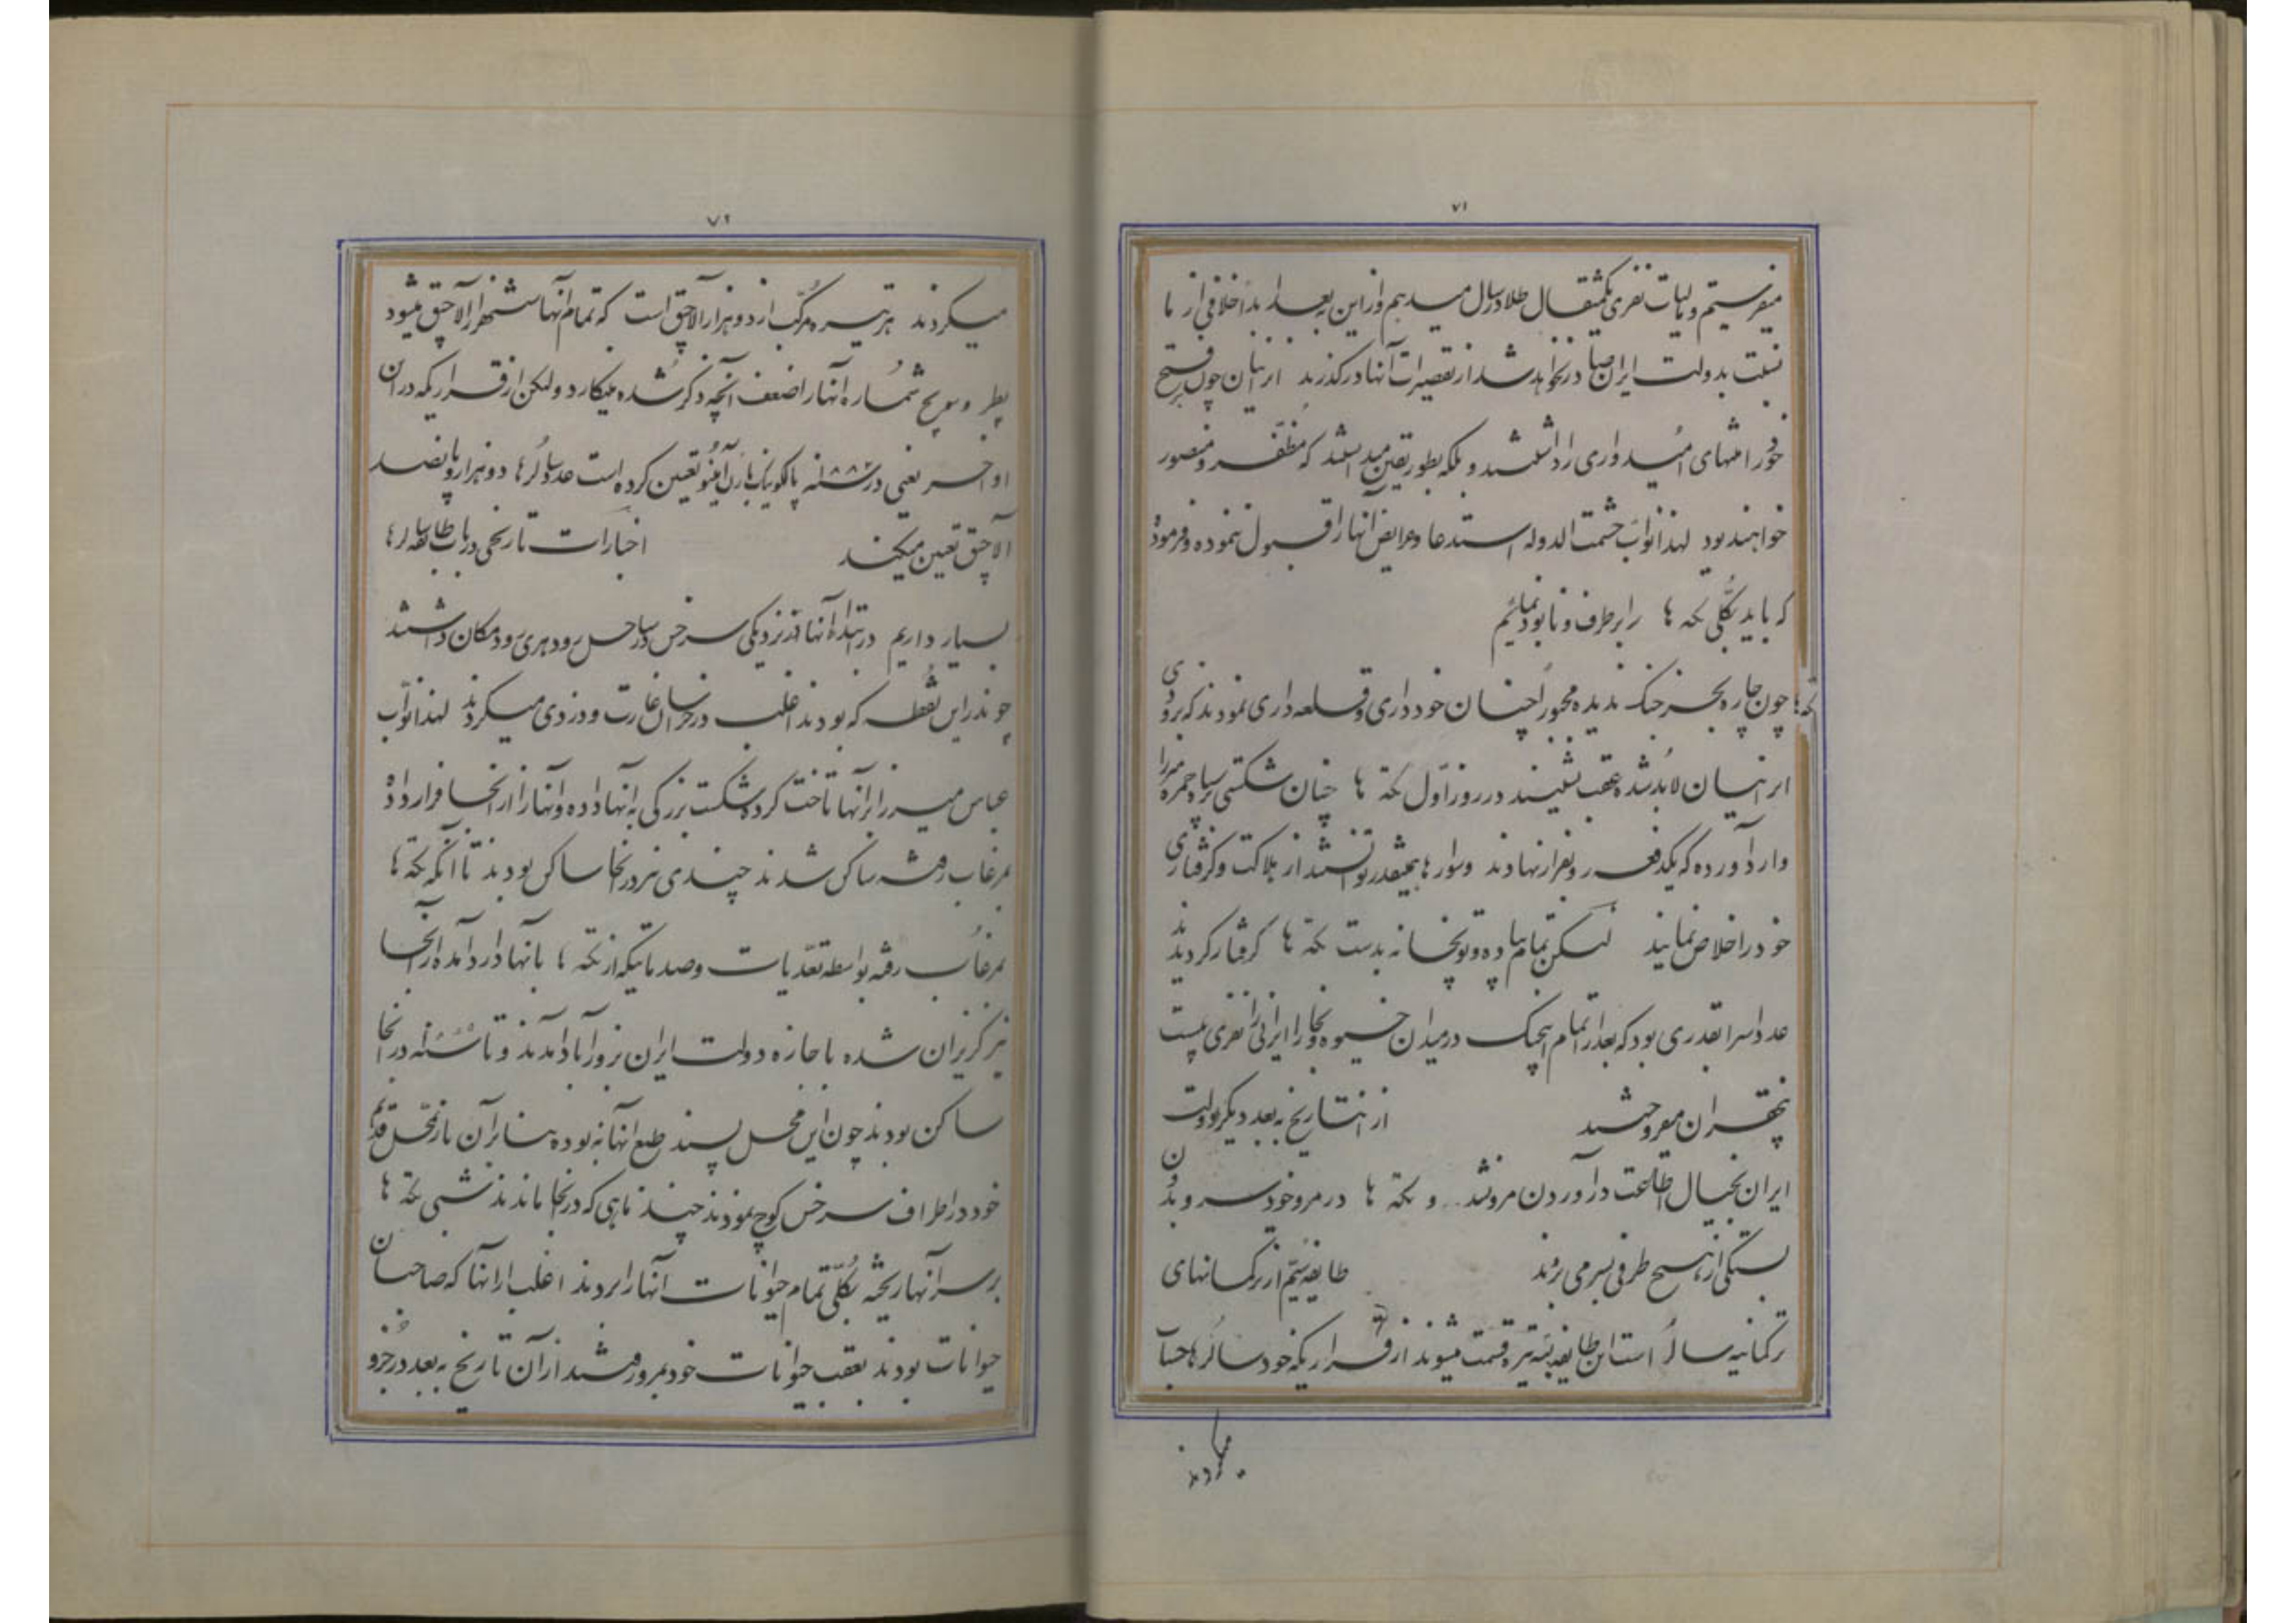 ۷۱
میفرستیم و مالیات نفری یکمثقال طلا در سال میدهیم و از این به بعد ابداً خلافی از ما
نسبت بدولت ایران صادر نخواهد شد از تقصیرات آنها درگذرند ایرانیان چون بفتح
خود امنهای امیدواری را داشتند و بلکه بطور یقین میدانستند که مظفر و منصور
خواهند بود لهذا نواب حشمت الدوله استدعا و عرایض آنها را قبول ننموده و فرمودند
که باید بکلی تکه ها را برطرف و نابود نمائیم
تکه ها چون چاره بجز جنگ ندیده مجبوراً چنان خودداری و قلعه داری نمودند که بزودی
ایرانیان لابد شده عقب نشینند در روز اول تکه ها چنان شکستی بسپاه حمزه میرزا
وارد آورده که یکدفعه رو بفرار نهادند و سوارها همینقدر توانستند از هلاکت و گرفتاری
خود را خلاص نمایند لیکن تمام پیاده و توپخانه بدست تکه ها گرفتار گردیدند
عدد اسرا بقدری بود که بعد از اتمام این جنگ در میدان خیوه و بخارا ایرانی را نفری بیست
پنجقران میفروختند از این تاریخ به بعد دیگر دولت
ایران بخیال اطاعت در آوردن مرو نشد و تکه ها در مرو خودسر و بدون
بستگی از هیچ طرفی بسر می بردند طایفه ششم از ترکمانهای
ترکمانیه سالر است این طایفه به سه تیره قسمت میشوند از قراریکه خود سالرها حساب
میکردند
۷۲
میکردند هر تیره مرکب از دو هزار آلاچق است که تمام آنها شش هزار آلاچق میشود
پطر و سویچ شماره آنها را ضعف آنچه ذکر شده مینگارد ولیکن از قراریکه در این
اواخر یعنی در سنه ۱۸۸۱ پالکونیک بارن آمینو تعیین کرده است عدد سالرها دو هزار و پانصد
آلاچق تعیین میکند اخبارات تاریخی در باب طایفه سالرها
بسیار داریم در ابتدا آنها در نزدیکی سرخس در ساحل رود هری رود مکان داشتند
چون در این نقطه که بودند اغلب در خراسان غارت و دزدی میکردند لهذا نواب
عباس میرزا بر آنها تاخت کرده شکست بزرگی به آنها داده و آنها را از آنجا فرار داد
بمرغاب رفته ساکن شدند چندی نیز در آنجا ساکن بودند تا آنکه تکه ها
بمرغاب رفته بواسطه تعدیات و صدماتیکه از تکه ها بآنها وارد آمده از آنجا
نیز گریزان شده با جازه دولت ایران بزورآباد آمدند و تا سنه در آنجا
ساکن بودند چون این محل پسند طبع آنها نبوده بنابر آن باز بمحل قدیم
خود در اطراف سرخس کوچ نمودند چند ماهی که در آنجا ماندند شبی تکه ها
بر سر آنها ریخته بکلی تمام حیوانات آنها را بردند اغلب از آنها که صاحبان
حیوانات بودند بعقب حیوانات خود بمرو رفتند از آن تاریخ به بعد در جزو